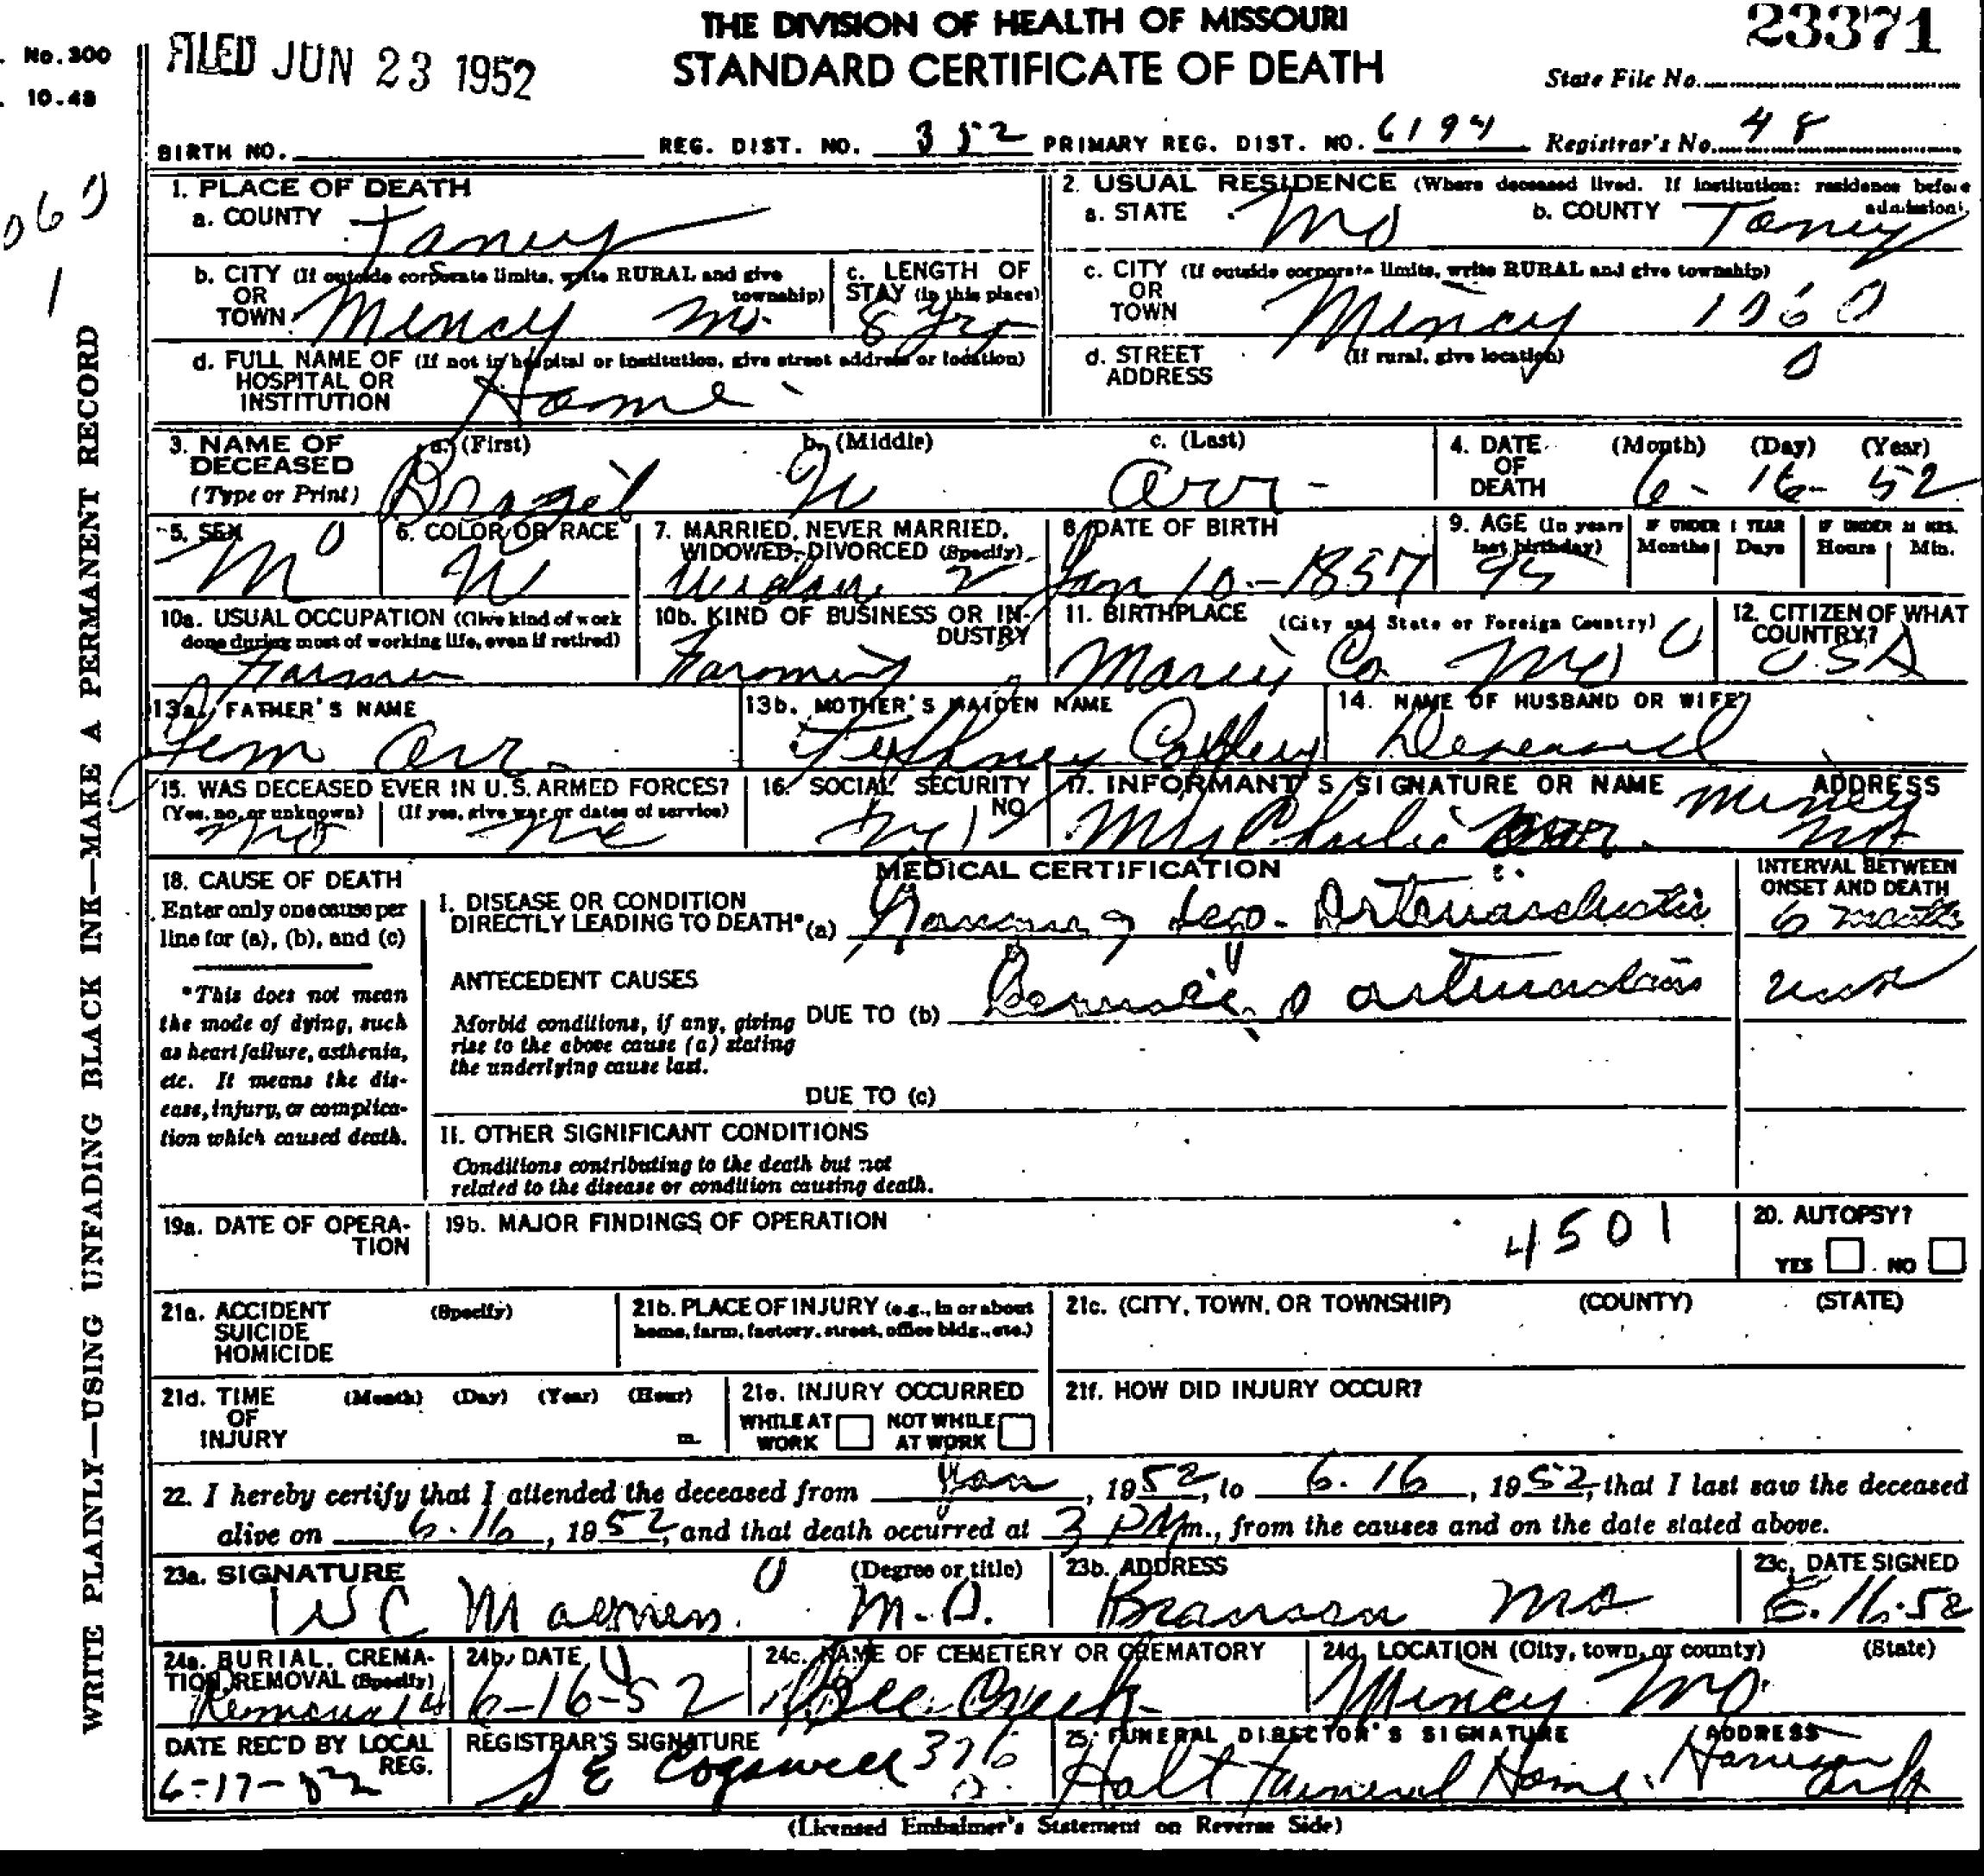 THE DIVISION OF HEALTH OF MISSOURI
STANDARD CERTIFICATE OF DEATH
23371
State File No.
No. 300
10.48
FILED JUN 23 1952
BIRTH NO.
REG. DIST. NO. 352 PRIMARY REG. DIST. NO. 6194 Registrar's No. 48
1. PLACE OF DEATH
a. COUNTY Taney
2. USUAL RESIDENCE (Where deceased lived. If institution: residence before admission).
a. STATE Mo b. COUNTY Taney
b. CITY (If outside corporate limits, write RURAL and give township) OR TOWN Mincy Mo.
c. LENGTH OF STAY (in this place) 8 yrs
c. CITY (If outside corporate limits, write RURAL and give township) OR TOWN Mincy 1060
d. FULL NAME OF (If not in hospital or institution, give street address or location) HOSPITAL OR INSTITUTION Home
d. STREET ADDRESS (If rural, give location) 0
3. NAME OF DECEASED (Type or Print)
a. (First) b. (Middle) W c. (Last) Orr
4. DATE OF DEATH (Month) (Day) (Year) 6-16-52
5. SEX M 0
6. COLOR OR RACE W
7. MARRIED, NEVER MARRIED, WIDOWED, DIVORCED (Specify) 2
8. DATE OF BIRTH Jan 10-1857
9. AGE (In years last birthday) 95
IF UNDER 1 YEAR Months Days
IF UNDER 24 HRS. Hours Min.
10a. USUAL OCCUPATION (Give kind of work done during most of working life, even if retired) Farmer
10b. KIND OF BUSINESS OR INDUSTRY Farming
11. BIRTHPLACE (City and State or Foreign Country) Co Mo 0
12. CITIZEN OF WHAT COUNTRY? USA
13a. FATHER'S NAME Orr
13b. MOTHER'S MAIDEN NAME
14. NAME OF HUSBAND OR WIFE Deceased
15. WAS DECEASED EVER IN U.S. ARMED FORCES?
(Yes, no, or unknown) No (If yes, give war or dates of service)
16. SOCIAL SECURITY NO.
17. INFORMANT'S SIGNATURE OR NAME ADDRESS
Mrs Charlie Orr. Mincy Mo
18. CAUSE OF DEATH
Enter only one cause per line for (a), (b), and (c)
*This does not mean the mode of dying, such as heart failure, asthenia, etc. It means the disease, injury, or complication which caused death.
MEDICAL CERTIFICATION
INTERVAL BETWEEN ONSET AND DEATH
I. DISEASE OR CONDITION DIRECTLY LEADING TO DEATH* (a) Arteriosclerotic 6 months
ANTECEDENT CAUSES
Morbid conditions, if any, giving rise to the above cause (a) stating the underlying cause last.
DUE TO (b)
DUE TO (c)
II. OTHER SIGNIFICANT CONDITIONS
Conditions contributing to the death but not related to the disease or condition causing death.
19a. DATE OF OPERATION
19b. MAJOR FINDINGS OF OPERATION
4501
20. AUTOPSY?
YES NO
21a. ACCIDENT SUICIDE HOMICIDE (Specify)
21b. PLACE OF INJURY (e.g., in or about home, farm, factory, street, office bldg., etc.)
21c. (CITY, TOWN, OR TOWNSHIP) (COUNTY) (STATE)
21d. TIME OF INJURY (Month) (Day) (Year) (Hour) m.
21e. INJURY OCCURRED
WHILE AT WORK NOT WHILE AT WORK
21f. HOW DID INJURY OCCUR?
22. I hereby certify that I attended the deceased from Jan, 1952, to 6.16, 1952, that I last saw the deceased
alive on 6.16, 1952, and that death occurred at 3 PM m., from the causes and on the date stated above.
23a. SIGNATURE (Degree or title) M.D.
23b. ADDRESS Branson Mo
23c. DATE SIGNED 6.16.52
24a. BURIAL, CREMATION, REMOVAL (Specify) Removal
24b. DATE 6-16-52
24c. NAME OF CEMETERY OR CREMATORY Bee Creek
24d. LOCATION (City, town, or county) (State) Mincy Mo.
DATE REC'D BY LOCAL REG. 6-17-52
REGISTRAR'S SIGNATURE S E Cogswell 376
25. FUNERAL DIRECTOR'S SIGNATURE ADDRESS
Holt Funeral Home. Harrison Ark
(Licensed Embalmer's Statement on Reverse Side)
WRITE PLAINLY—USING UNFADING BLACK INK—MAKE A PERMANENT RECORD